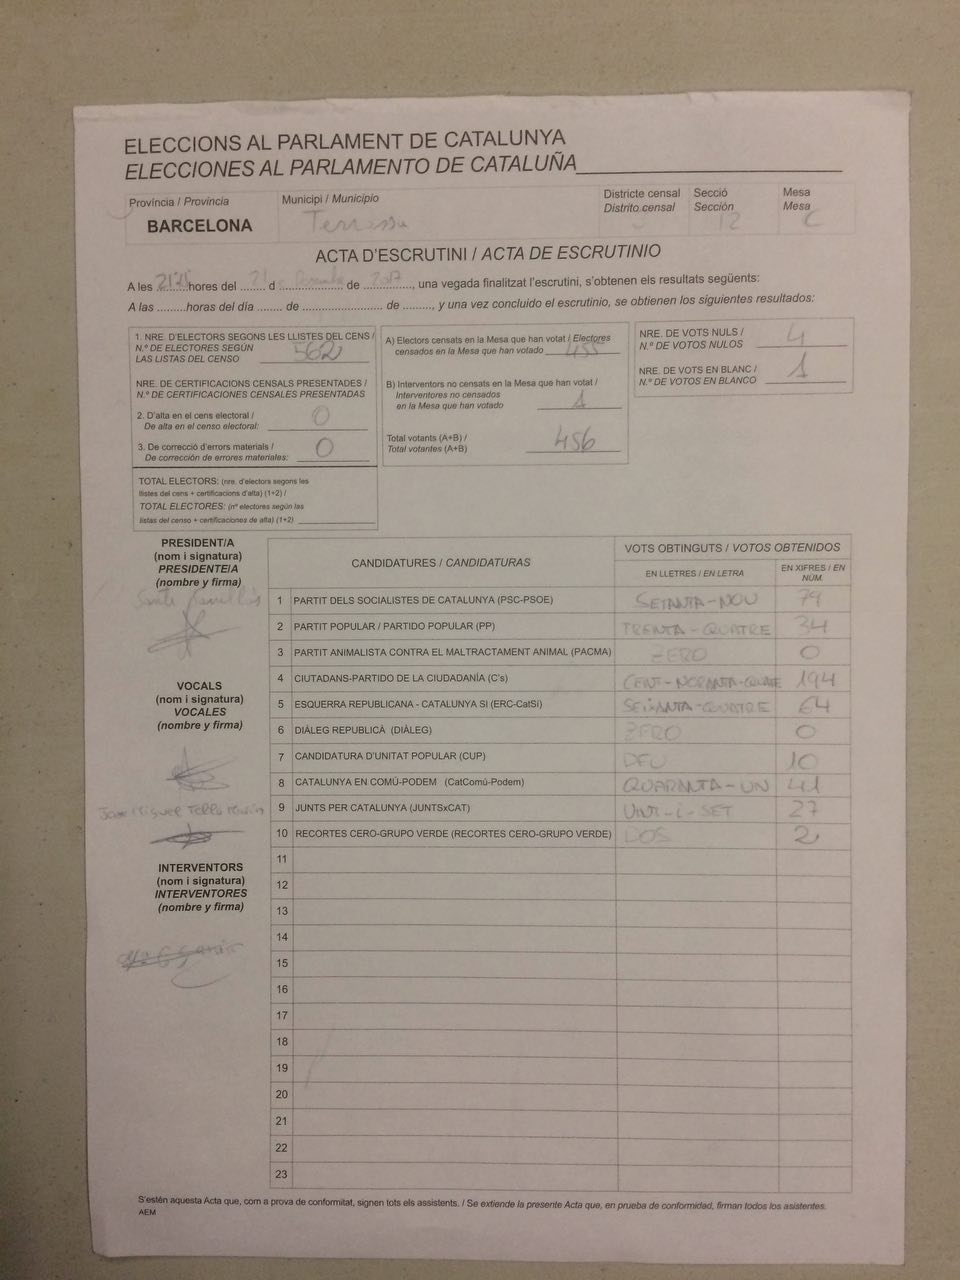 ELECCIONS AL PARLAMENT DE CATALUNYA
ELECCIONES AL PARLAMENTO DE CATALUÑA
Província / Provincia
BARCELONA
Municipi / Municipio
Terrassa
Districte censal
Distrito censal
Secció
Sección
12
Mesa
Mesa
C
ACTA D'ESCRUTINI / ACTA DE ESCRUTINIO
A les hores del 21 d de 2017, una vegada finalitzat l'escrutini, s'obtenen els resultats següents:
A las .........horas del día ....... de ......................... de ........, y una vez concluido el escrutinio, se obtienen los siguientes resultados:
1. NRE. D'ELECTORS SEGONS LES LLISTES DEL CENS /
N.º DE ELECTORES SEGÚN
LAS LISTAS DEL CENSO 562
NRE. DE CERTIFICACIONS CENSALS PRESENTADES /
N.º DE CERTIFICACIONES CENSALES PRESENTADAS
2. D'alta en el cens electoral /
De alta en el censo electoral: 0
3. De correcció d'errors materials /
De corrección de errores materiales: 0
TOTAL ELECTORS: (nre. d'electors segons les
llistes del cens + certificacions d'alta) (1+2) /
TOTAL ELECTORES: (nº electores según las
listas del censo + certificaciones de alta) (1+2)
A) Electors censats en la Mesa que han votat / Electores
censados en la Mesa que han votado 455
B) Interventors no censats en la Mesa que han votat /
Interventores no censados
en la Mesa que han votado 1
Total votants (A+B) /
Total votantes (A+B) 456
NRE. DE VOTS NULS /
N.º DE VOTOS NULOS 4
NRE. DE VOTS EN BLANC /
N.º DE VOTOS EN BLANCO 1
PRESIDENT/A
(nom i signatura)
PRESIDENTE/A
(nombre y firma)
VOCALS
(nom i signatura)
VOCALES
(nombre y firma)
Jose Miguel Tello
INTERVENTORS
(nom i signatura)
INTERVENTORES
(nombre y firma)
CANDIDATURES / CANDIDATURAS
VOTS OBTINGUTS / VOTOS OBTENIDOS
EN LLETRES / EN LETRA
EN XIFRES / EN NÚM.
1 PARTIT DELS SOCIALISTES DE CATALUNYA (PSC-PSOE) SETANTA-NOU 79
2 PARTIT POPULAR / PARTIDO POPULAR (PP) TRENTA-QUATRE 34
3 PARTIT ANIMALISTA CONTRA EL MALTRACTAMENT ANIMAL (PACMA) ZERO 0
4 CIUTADANS-PARTIDO DE LA CIUDADANÍA (C's) CENT-NORANTA-QUATRE 194
5 ESQUERRA REPUBLICANA - CATALUNYA SI (ERC-CatSí) SEIXANTA-QUATRE 64
6 DIÀLEG REPUBLICÀ (DIÀLEG) ZERO 0
7 CANDIDATURA D'UNITAT POPULAR (CUP) DEU 10
8 CATALUNYA EN COMÚ-PODEM (CatComú-Podem) QUARANTA-UN 41
9 JUNTS PER CATALUNYA (JUNTSxCAT) VINT-I-SET 27
10 RECORTES CERO-GRUPO VERDE (RECORTES CERO-GRUPO VERDE) DOS 2
11
12
13
14
15
16
17
18
19
20
21
22
23
S'estén aquesta Acta que, com a prova de conformitat, signen tots els assistents. / Se extiende la presente Acta que, en prueba de conformidad, firman todos los asistentes.
AEM